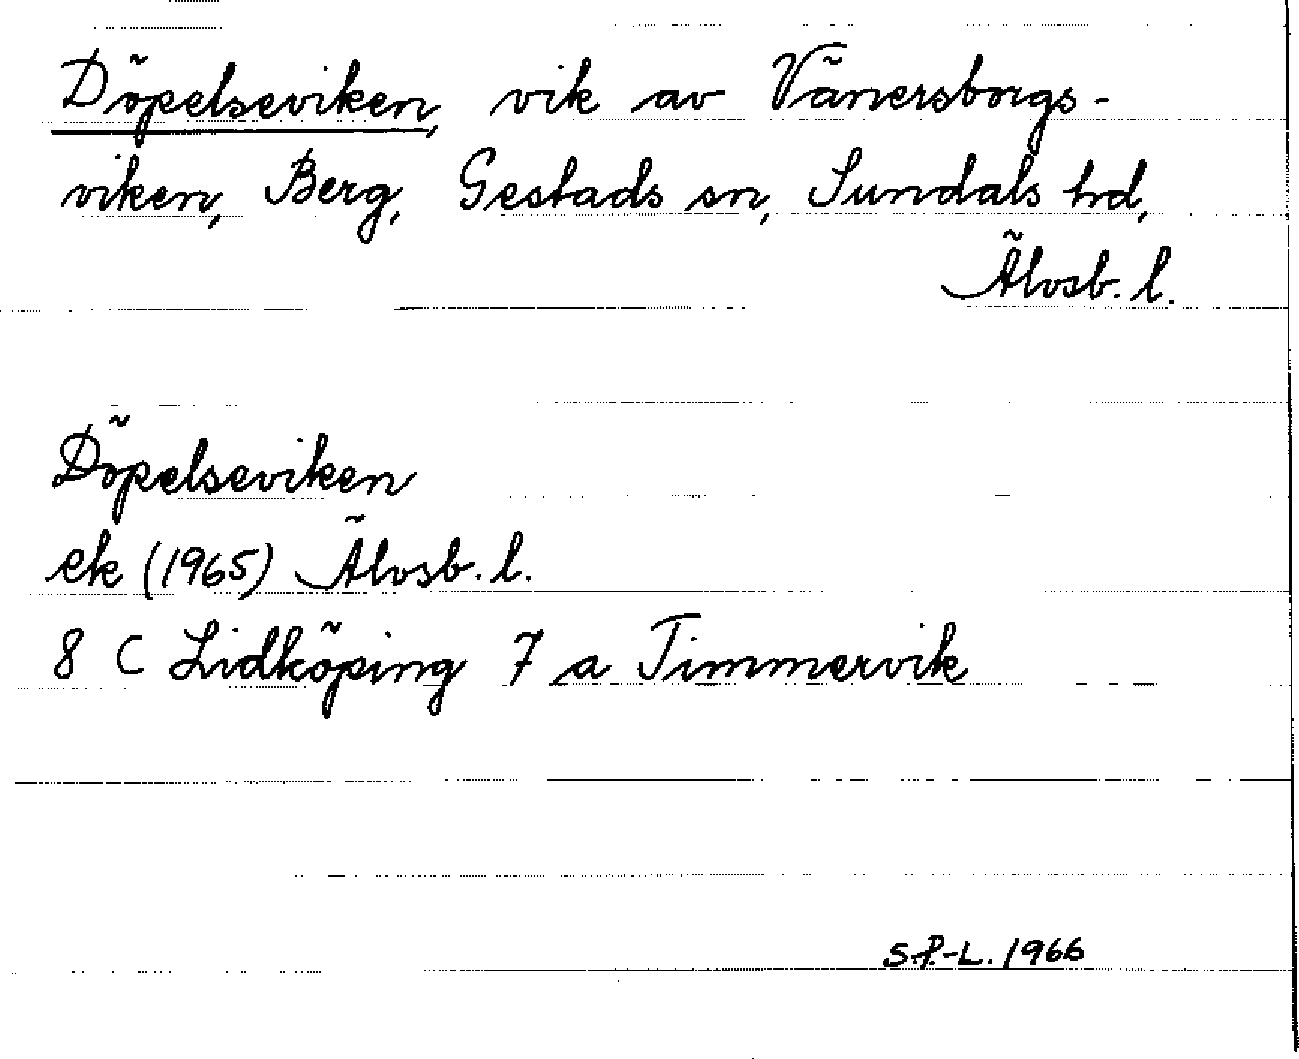 Döpelseviken, vik av Vänersborgs-
viken, Berg, Gestads sn, Sundals hd,
Älvsb. l.
Döpelseviken
ek (1965) Älvsb. l.
8 C Lidköping 7 a Timmervik
S.P.-L. 1966